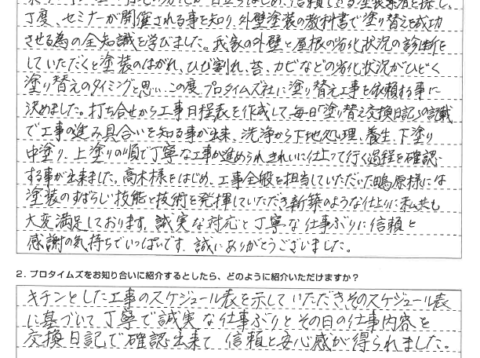 丁度、セミナーが開催される事を知り、外壁塗装の教科書で塗り替えを成功
させる為の全知識を学びました。我家の外壁と屋根の劣化状況の診断を
していただくと塗装のはがれ、ひび割れ、苔、カビなどの劣化状況がひどく
塗り替えのタイミングと思い、この度プロタイムズ社に塗り替え工事を依頼する事に
決めました。打ち合せから工事日程表を作成して、毎日「塗り替え交換日記」の記載
で工事の進み具合いを知る事が出来、洗浄から下地処理、養生、下塗り
中塗り、上塗りの順で丁寧な工事が進められきれいに仕上って行く過程を確認
する事が出来ました。高木様をはじめ、工事全般を担当していただいた嶋原様には
塗装のすばらしい技能と技術を発揮していただき新築のような仕上りに私共も
大変満足しております。誠実な対応と丁寧な仕事ぶりに信頼と
感謝の気持ちでいっぱいです。誠にありがとうございました。
2. プロタイムズをお知り合いに紹介するとしたら、どのように紹介いただけますか?
キチンとした工事のスケジュール表を示していただきそのスケジュール表
に基づいて丁寧で誠実な仕事ぶりとその日の仕事内容を
交換日記で確認出来て信頼と安心感が得られました。